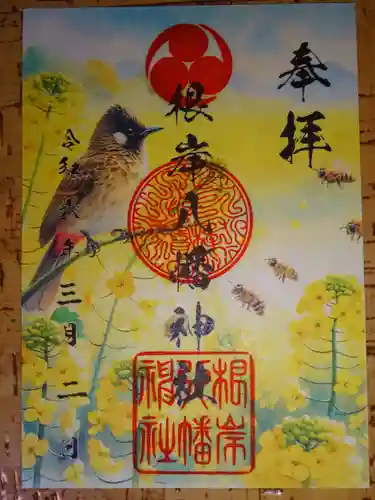 奉拝
根岸八幡神社
令和 年三月二 日
根岸
八幡
神社